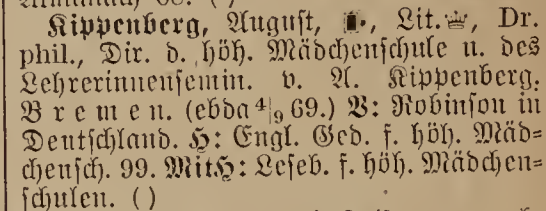 Kippenberg, August, Lit. Dr.
phil., Dir. d. höh. Mädchenschule u. des
Lehrerinnensemin. v. A. Kippenberg.
Bremen. (ebda 4|9 69.) V: Robinson in
Deutschland. H: Engl. Ged. f. höh. Mäd=
chensch. 99. MitH: Leseb. f. höh. Mädchen=
schulen. ( )